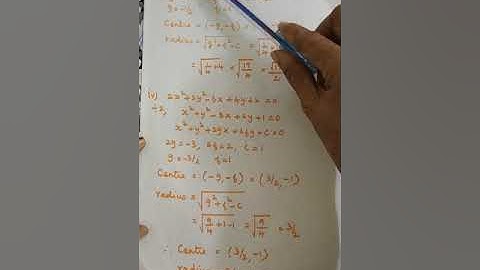 Centre = (-g, -f) =
radius = √g²+f²-c =
= √1/4+4 = √17/4 = √17/2
iv) 2x²+2y²-6x+4y+2=0
÷2, x²+y²-3x+2y+1=0
x²+y²+2gx+2fy+c=0
2g=-3, 2f=2, c=1
g=-3/2 f=1
Centre = (-g,-f) = (3/2,-1)
radius = √g²+f²-c
= √9/4+1-1 = √9/4 = 3/2
∴ Centre = (3/2,-1)